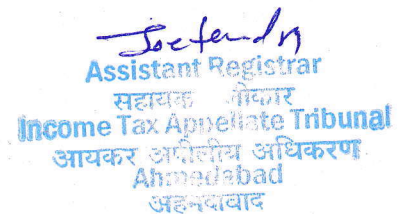 Assistant Registrar
सहायक
Income Tax Appellate Tribunal
आयकर अपीलीय अधिकरण
Ahmedabad
अहमदाबाद